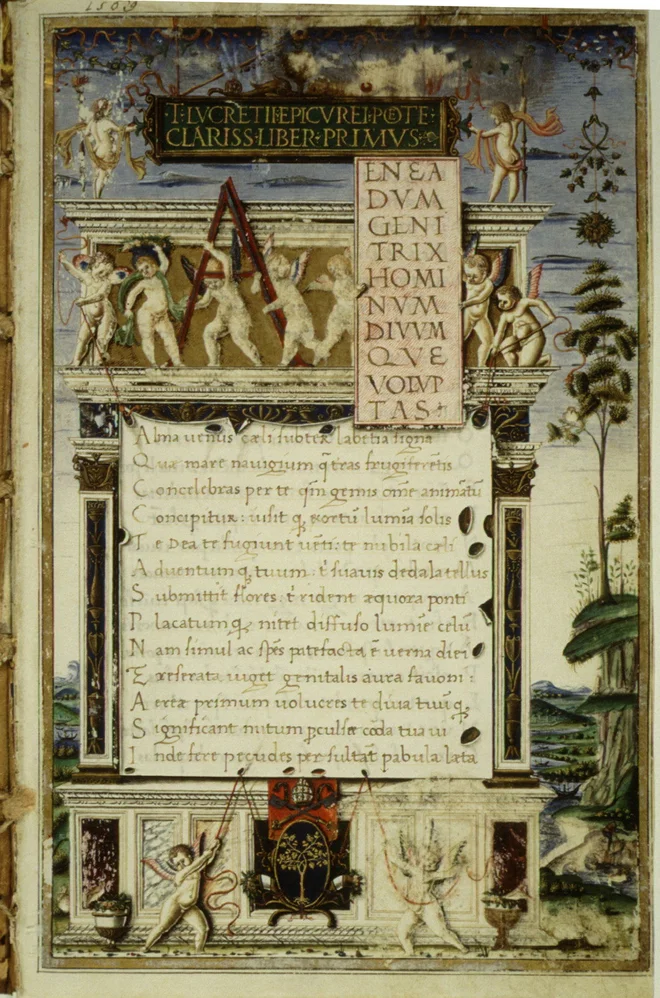 15029
T·LVCRETII·EPICVREI·POETE·
CLARISS·LIBER·PRIMVS·
A
ENEA
DVM
GENI
TRIX
HOMI
NVM
DIVVM
QVE
VOLVP
TAS
Alma uenus cæli subter labētia signa
Quæ mare nauigium q̄ tras frugiferētis
Concelebras per te qm̄ genus om̄e animātū
Concipitur: uisit q̨ exortū lumīa solis
Te Dea te fugiunt uēti: te nubila cæli
Aduentumq̨ tuum: t' suauis dedala tellus
Submittit flores: t' rident æquora ponti
Placatumq̨ nitet diffuso lumīe celū
Nam simul ac spēs patefacta ē uerna diei
Exeserata uiget genitalis aura fauoni:
Aeriæ primum uolucres te diua tuūq̨
Significant initum pculsæ corda tua ui
Inde fere pecudes per sultāt pabula læta